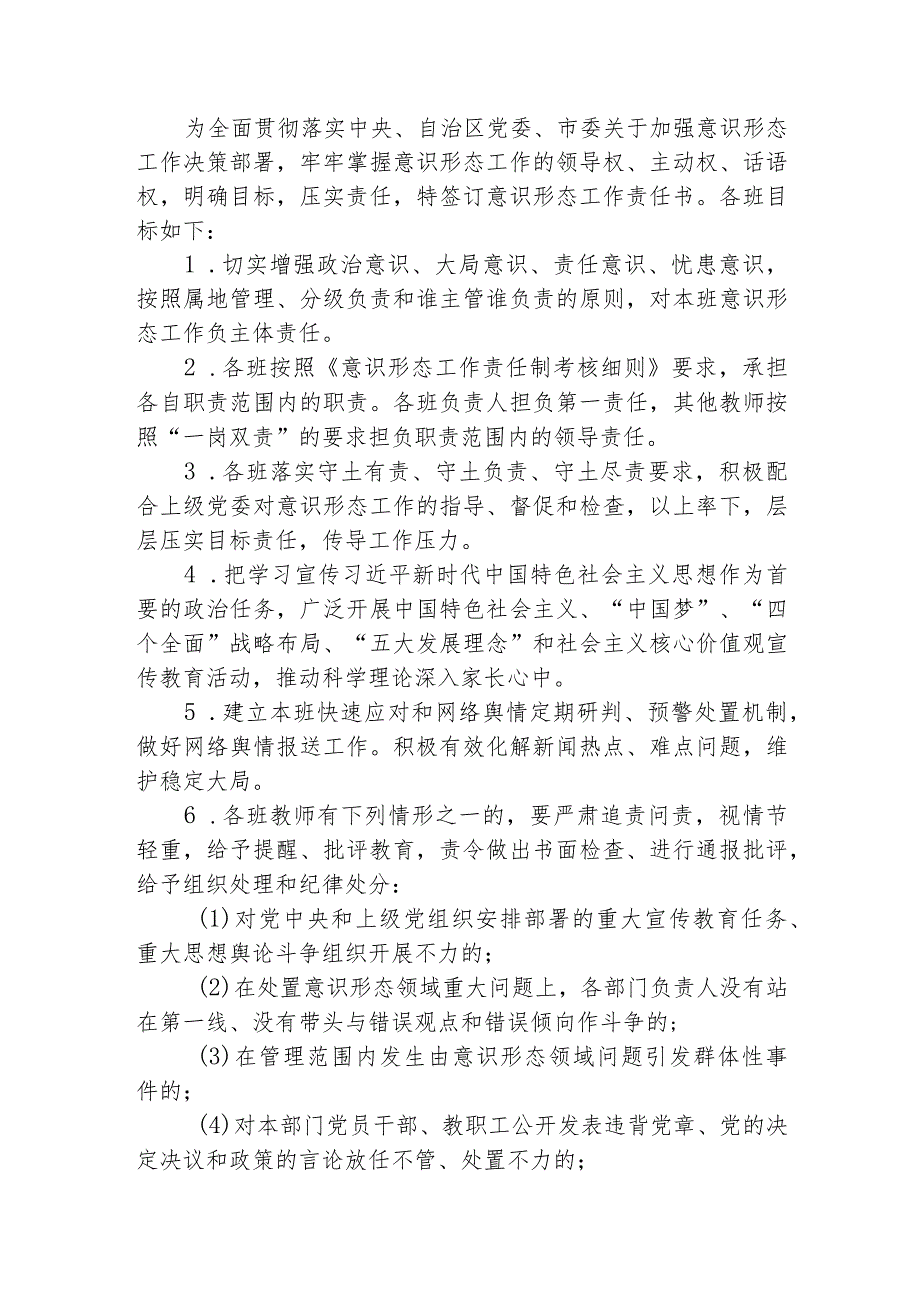 为全面贯彻落实中央、自治区党委、市委关于加强意识形态
工作决策部署，牢牢掌握意识形态工作的领导权、主动权、话语
权，明确目标，压实责任，特签订意识形态工作责任书。各班目
标如下：
1 .切实增强政治意识、大局意识、责任意识、忧患意识，
按照属地管理、分级负责和谁主管谁负责的原则，对本班意识形
态工作负主体责任。
2 .各班按照《意识形态工作责任制考核细则》要求，承担
各自职责范围内的职责。各班负责人担负第一责任，其他教师按
照“一岗双责”的要求担负职责范围内的领导责任。
3 .各班落实守土有责、守土负责、守土尽责要求，积极配
合上级党委对意识形态工作的指导、督促和检查，以上率下，层
层压实目标责任，传导工作压力。
4 .把学习宣传习近平新时代中国特色社会主义思想作为首
要的政治任务，广泛开展中国特色社会主义、“中国梦”、“四
个全面”战略布局、“五大发展理念”和社会主义核心价值观宣
传教育活动，推动科学理论深入家长心中。
5 .建立本班快速应对和网络舆情定期研判、预警处置机制，
做好网络舆情报送工作。积极有效化解新闻热点、难点问题，维
护稳定大局。
6 .各班教师有下列情形之一的，要严肃追责问责，视情节
轻重，给予提醒、批评教育，责令做出书面检查、进行通报批评，
给予组织处理和纪律处分：
(1)对党中央和上级党组织安排部署的重大宣传教育任务、
重大思想舆论斗争组织开展不力的；
(2)在处置意识形态领域重大问题上，各部门负责人没有站
在第一线、没有带头与错误观点和错误倾向作斗争的；
(3)在管理范围内发生由意识形态领域问题引发群体性事
件的；
(4)对本部门党员干部、教职工公开发表违背党章、党的决
定决议和政策的言论放任不管、处置不力的；